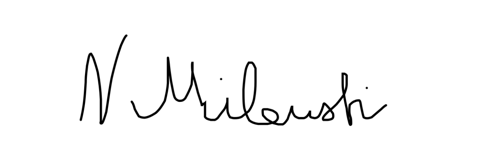 N. Milewski